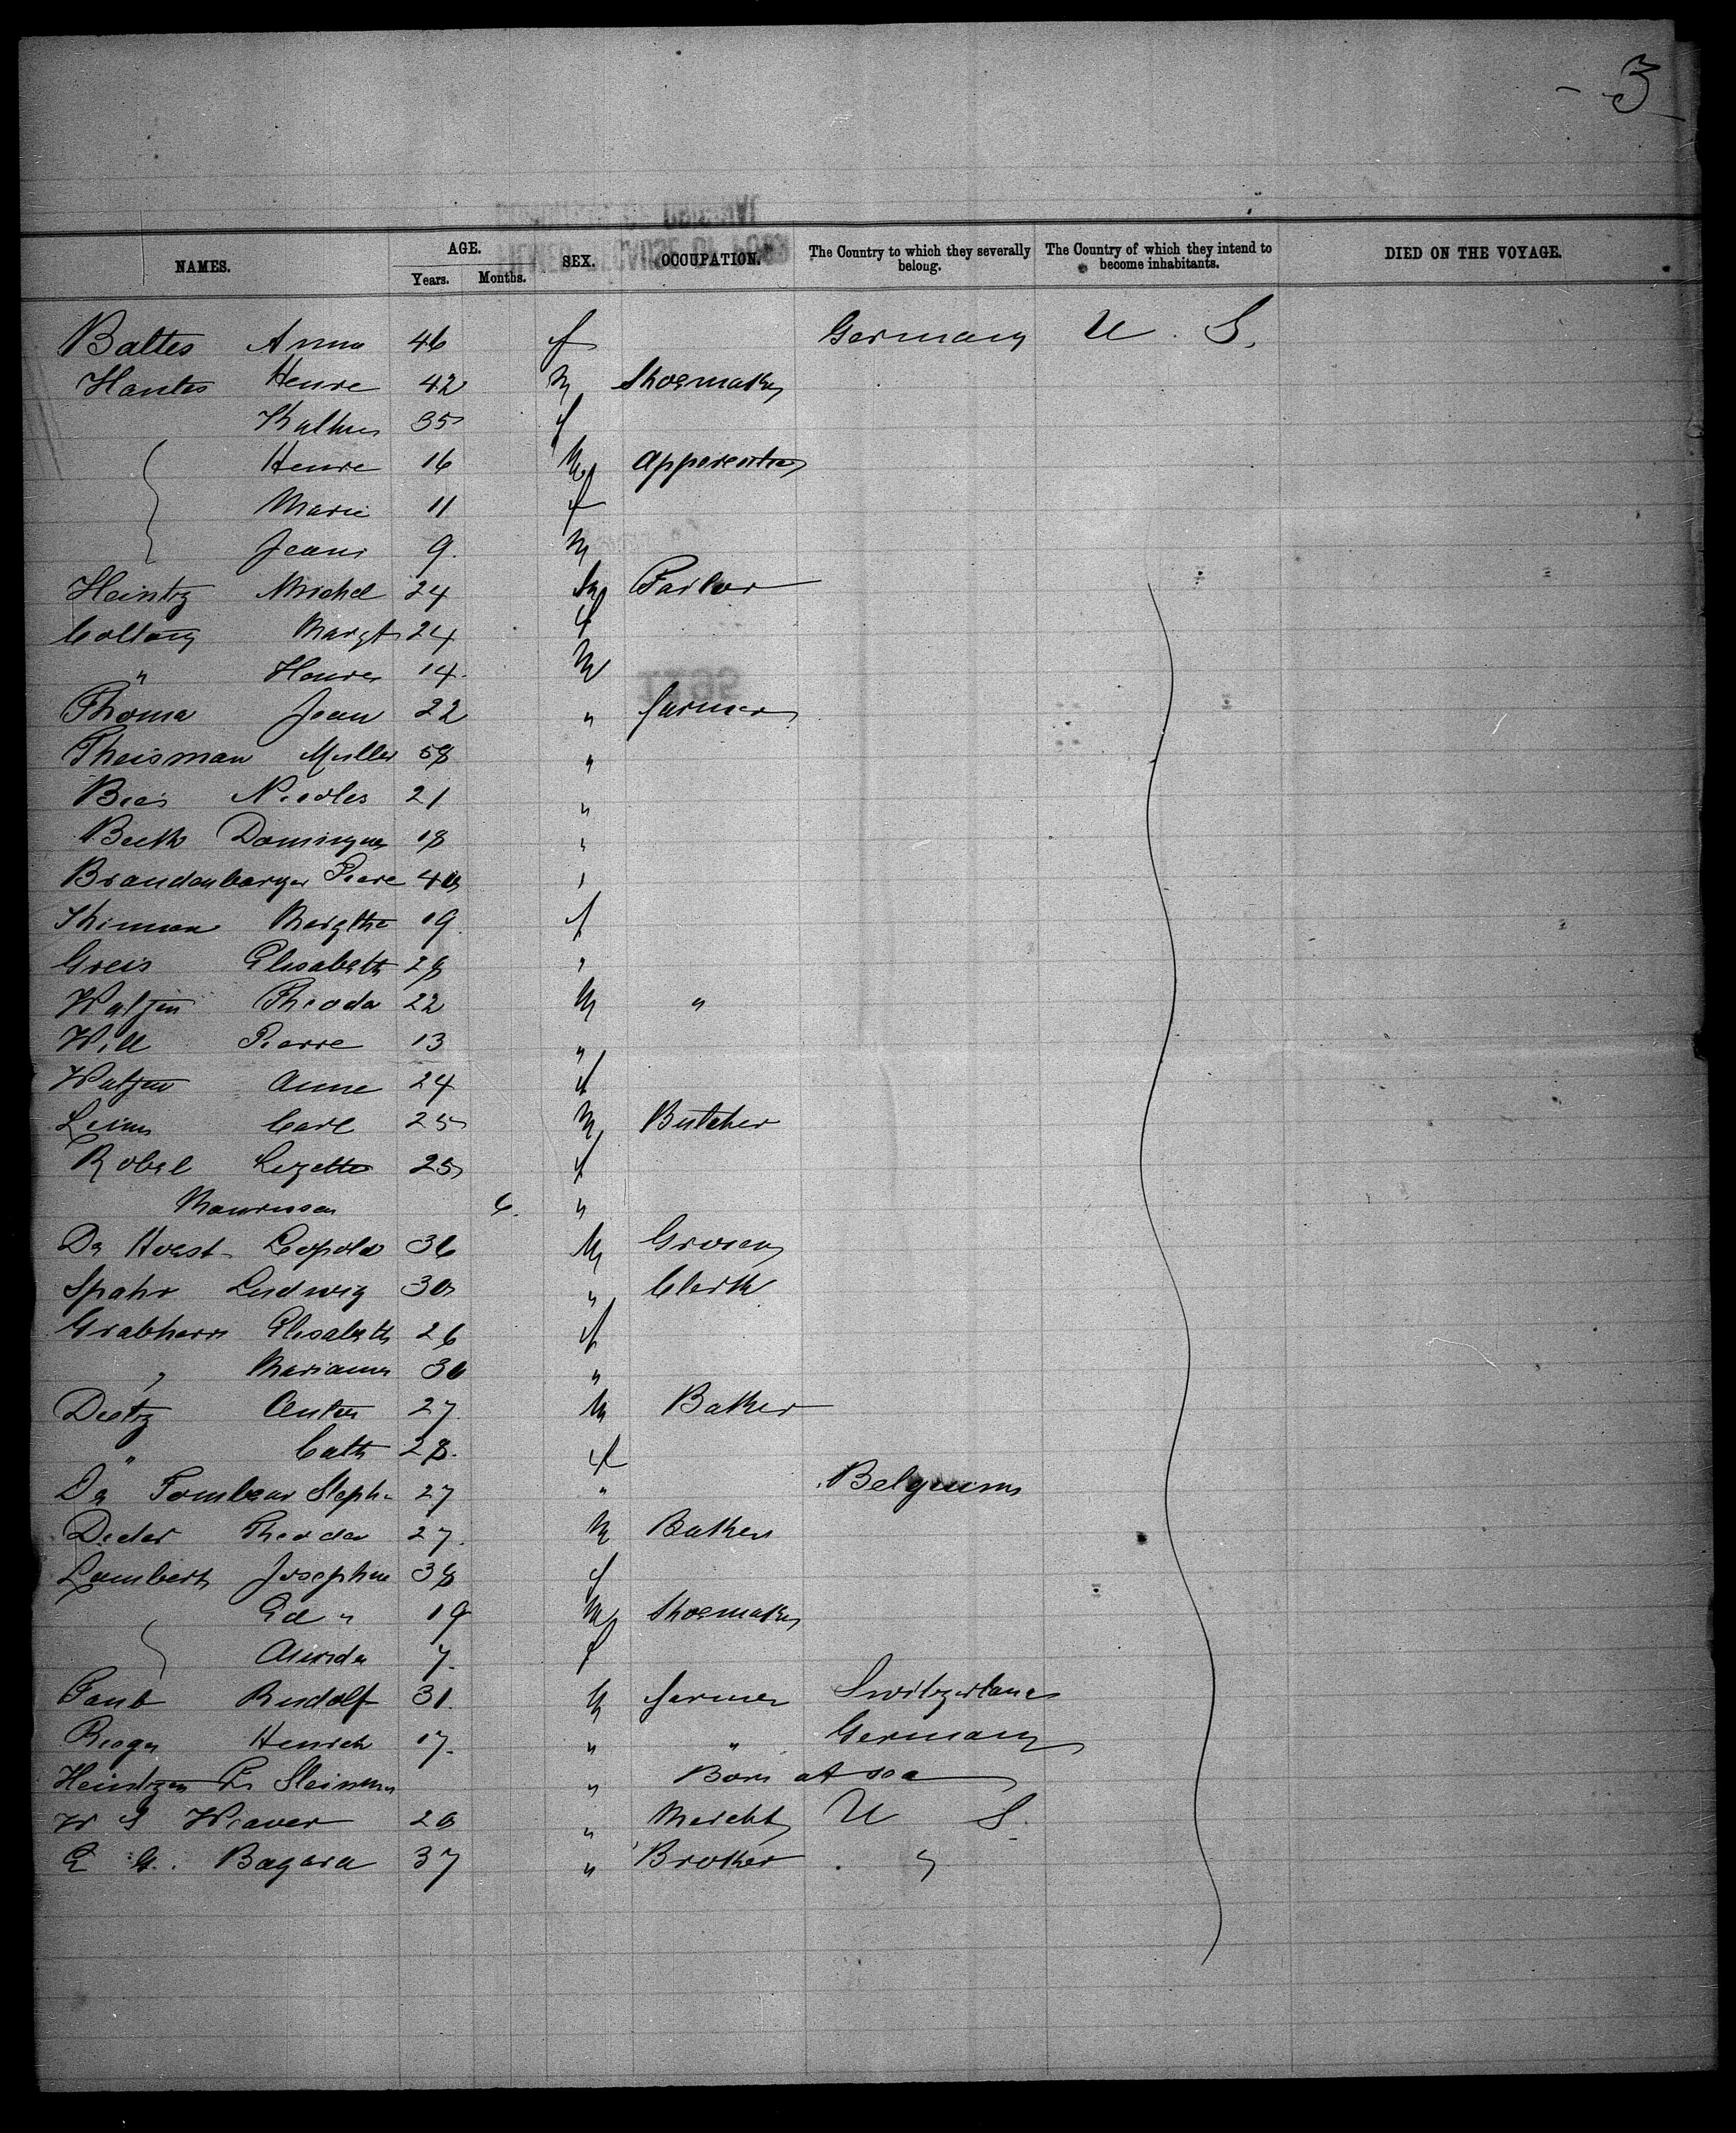 - 3 -
NAMES. AGE. Years. Months. SEX. OCCUPATION. The Country to which they severally belong. The Country of which they intend to become inhabitants. DIED ON THE VOYAGE.
Baltes Anna 46 f Germany U. S.
Hantes Henre 42 M Shoemaker
35 f
Henre 16 M
Marie 11 f
Jean 9. M
Heintz Michel 24 M Tailor
Margt 24 f
" 14. M
Thoma Jean 22 " farmer
Theisman Muller 58 "
Nicolas 21 "
Beck Dominque 18 "
Brandenburger Piere 40 "
19 f
Greis Elisabeth 28 "
Watjen Theodor 22 M "
Will Pierre 13 "
Watjen Anne 24 f
Carl 25 M Butcher
Robel Lizette 25 f
6. "
De Horst Leopold 36 M
Spahr Ludwig 30 " Clerk
Grabherr Elisabeth 26 f
" Marianna 30 "
Dietz Anton 27 M Baker
" Cath 28. f
De Tombeur Steph. 27 " Belgium
Theodor 27. M Baker
Lambert Josephine 38 f
Ed " 19 M Shoemaker
7. f
Taub Rudolf 31. M farmer Switzerland
Heinrich 17. " " Germany
" Born at sea
W S Weaver 20 " Mercht U S.
E G. Bagara 37 " Broker "